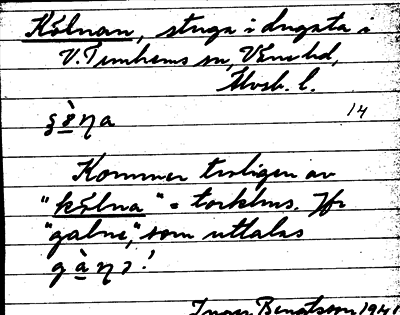 Kölnan, stuga i dugata i
V. Tunhems sn, Väne hd,
Älvsb. l.
14
Kommer troligen av
"kölna" = torkhus. Jfr
"galne", som uttalas
Inger Bengtsson 1941